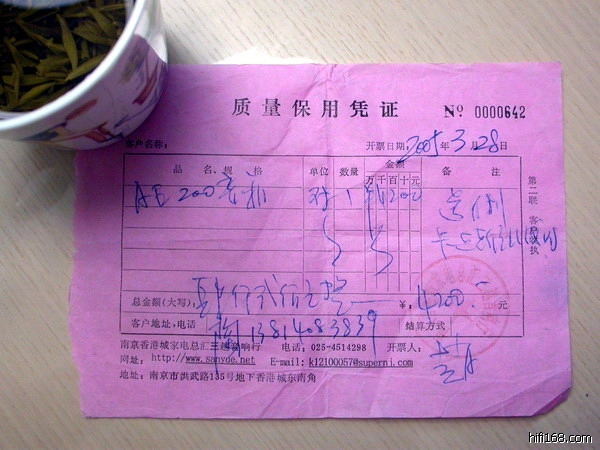 质量保用凭证 Nº 0000642
客户名称: 开票日期: 2005 年 3 月 28 日
品 名、规 格 单位 数量 金额 备 注
万 千 百 十 元
AE 200 对 1 4200 送
总金额(大写): 肆仟贰佰元整 ¥: 4200.- 元
客户地址,电话 13814083839 结算方式
南京香港城家电总汇三越音响行 电话: 025-4514298 开票人:
网址: http://www.sanyde.net E-mail: k12100057@supernj.com
地址: 南京市洪武路135号地下香港城东南角
第二联 客户收执
hifi168.com